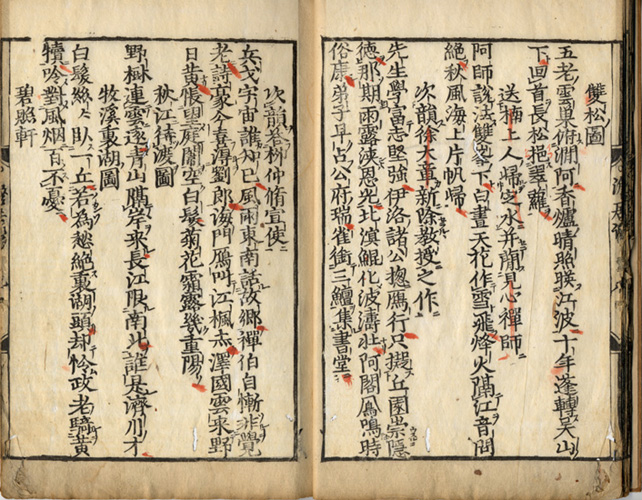 雙松圖
五老雲巢俯澗阿香爐晴照暎江波十年蓬轉呉山
下回首長松挹翠蘿
送楠上人歸之水并簡見心禪師
阿師說法雙峯下白晝天花作雪飛烽火隔江音問
絕秋風海上片帆歸
次韻徐大章新除教授之作
先生學富志堅強伊洛諸公揔鴈行只擬丘園崇隱
德那期雨露浹恩光北溟鯤化波濤壯阿閣鳳鳴時
俗康弟子早占公府瑞雀銜三鱣集書堂
次韻答柳仲脩宣使
兵戈宇宙誰知己風雨東南話故鄉禪伯自慚非覺
老詩豪今喜得劉郎海門鴈叫江楓赤澤國雲來野
日黄悵望庭闈空白髮菊花霜露幾重陽
秋江待渡圖
野樹連雲逐青山隔岸來長江限南北誰是濟川才
牧溪裏湖圖
白髮絲絲臥一丘若為愁絕裏湖頭却怜政老騎黄
犢吟對風烟百不憂
碧照軒